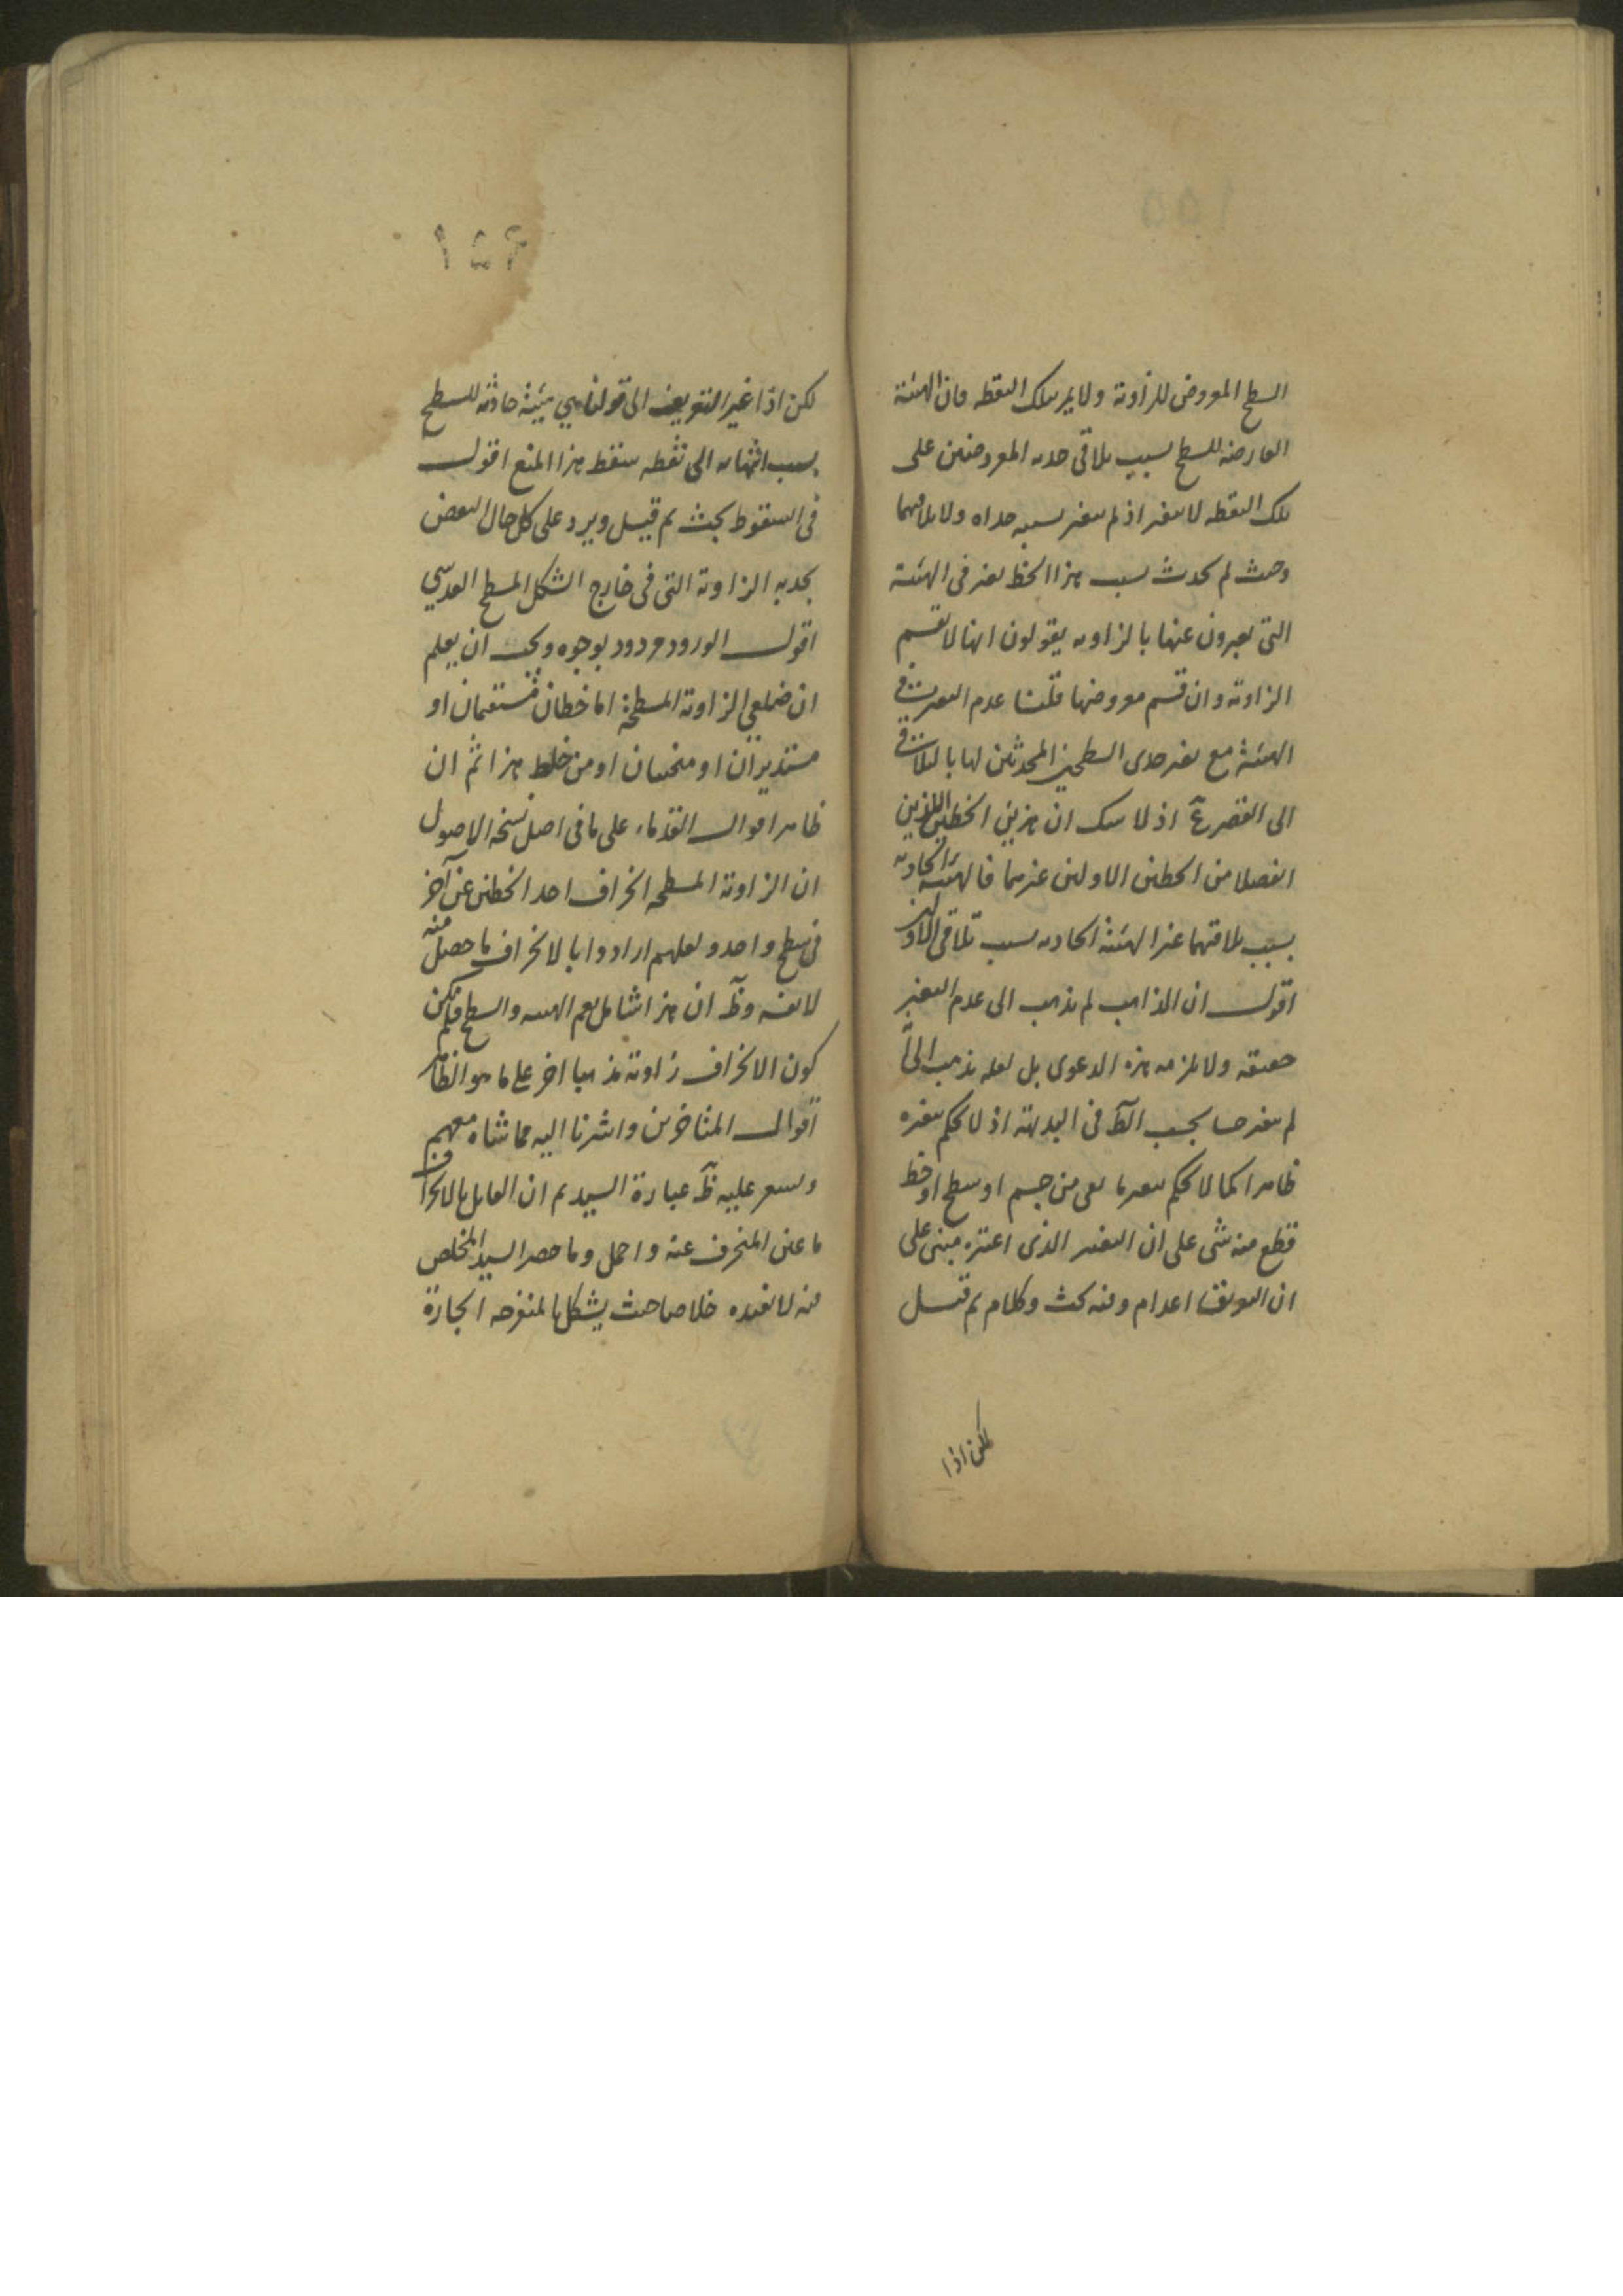 السطح المعروض للزاوية ولا يمر بتلك النقطه فان الهيئة
العارضه للسطح بسبب تلاقى حديه المعروضين على
تلك النقطه لا يتغير اذ لم يتغير بسببه حداه ولا تلاقيهما
وحيث لم يحدث بسبب هذا الخط تغير فى الهيئة
التى يعبرون عنها بالزاويه يقولون انها لا تقسم
الزاوية وان قسم معروضها قلنا عدم التغير فى
الهيئة مع تغير حدى السطحين المحدثين لها بالتلاقى
الى القصر ع اذ لا شك ان هذين الخطين اللذين
انفصلا من الخطين الاولين غيرهما فالهيئة الحادثه
بسبب تلاقيهما غير الهيئة الحادثه بسبب تلاقى الاولين
اقول ان الذاهب لم يذهب الى عدم التغير
حقيقه ولا يلزمه هذه الدعوى بل لعله يذهب الى
لم يتغير حسا بحسب الظ فى البديهة اذ لا يحكم بتغيره
ظاهرا كما لا يحكم بتغير ما بقى من جسم او سطح او خط
قطع منه شى على ان التغير الذى اعتبره مبنى على
ان التعريفات اعدام وفيه بحث وكلام ثم قيل
لكن اذا
١٥٦
لكن اذا غير التعريف الى قولنا هى هيئة حادثه للسطح
بسبب انتهائه الى نقطه سقط هذا المنع اقول
فى السقوط بحث ثم قيل ويرد على كل حال النقض
بحديه الزاوية التى فى خارج الشكل المسطح العدسي
اقول الورود مردود بوجوه ويجب ان يعلم
ان ضلعى الزاوية المسطحة اما خطان مستقيمان او
مستديران او منحنيان او من خلط هذا ثم ان
ظاهر اقوال القدماء على ما فى اصل نسخه الاصول
ان الزاوية المسطحه انحراف احد الخطين عن آخر
فى سطح واحد ولعلهم ارادوا بالانحراف ما حصل منه
لا نفسه وظ ان هذا شامل يعم الهيئه والسطح فلم يكن
كون الانحراف زاوية مذهبا اخر على ما هو الظاهر
اقوال المتأخرين واشرنا اليه مما شاه معهم
ويشعر عليه ظ عبارة السيد ثم ان القايل بالانحراف
ما عين المنحرف عنه واحمل وما حصر السيد المخلص
منه لا يفيده خلاصا حيث يشكل بالمنفرجه الحادة